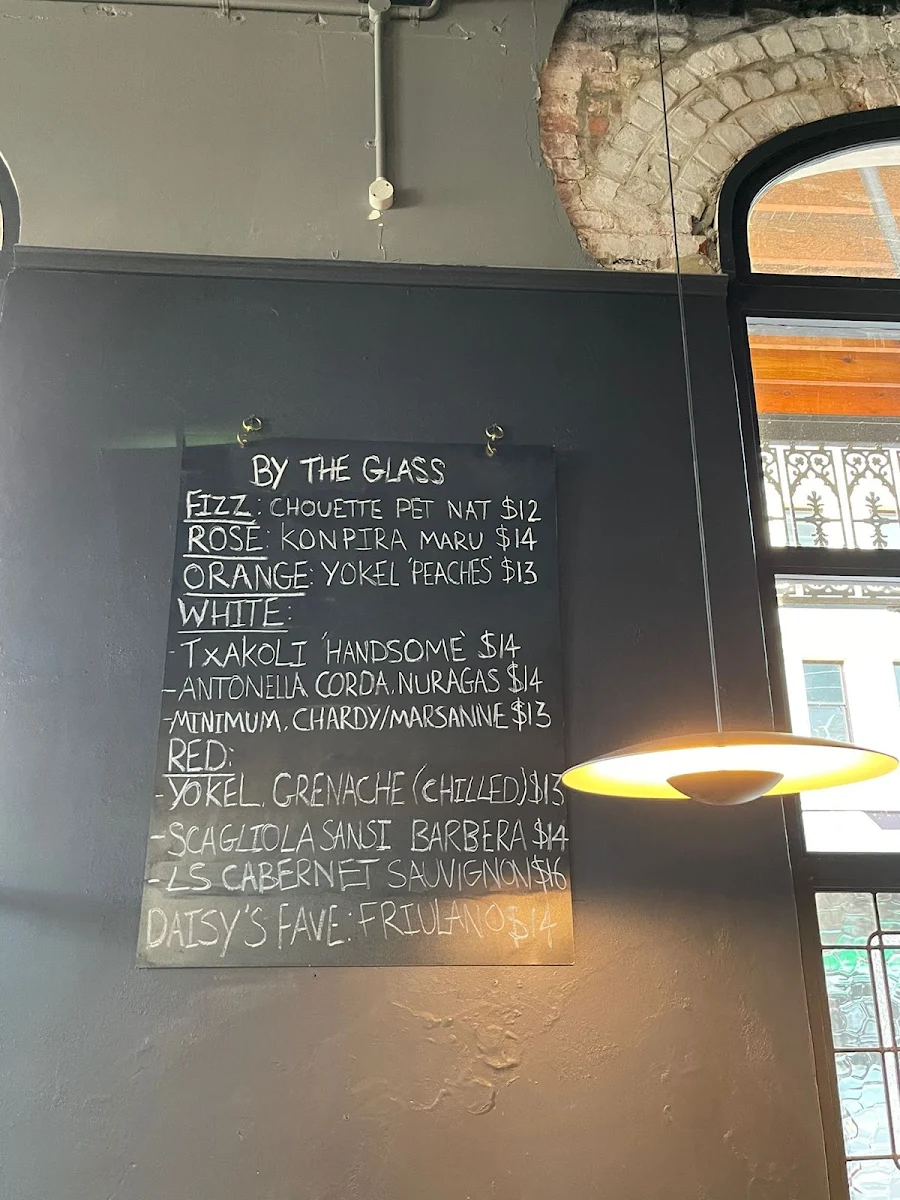 BY THE GLASS
FIZZ: CHOUETTE PET NAT $12
ROSÉ: KONPIRA MARU $14
ORANGE: YOKEL 'PEACHES' $13
WHITE:
- TXAKOLI 'HANDSOME' $14
- ANTONELLA CORDA, NURAGAS $14
- MINIMUM, CHARDY/MARSANNE $13
RED:
- YOKEL, GRENACHE (CHILLED) $13
- SCAGLIOLA SANSI BARBERA $14
- LS CABERNET SAUVIGNON $16
DAISY'S FAVE: FRIULANO $14